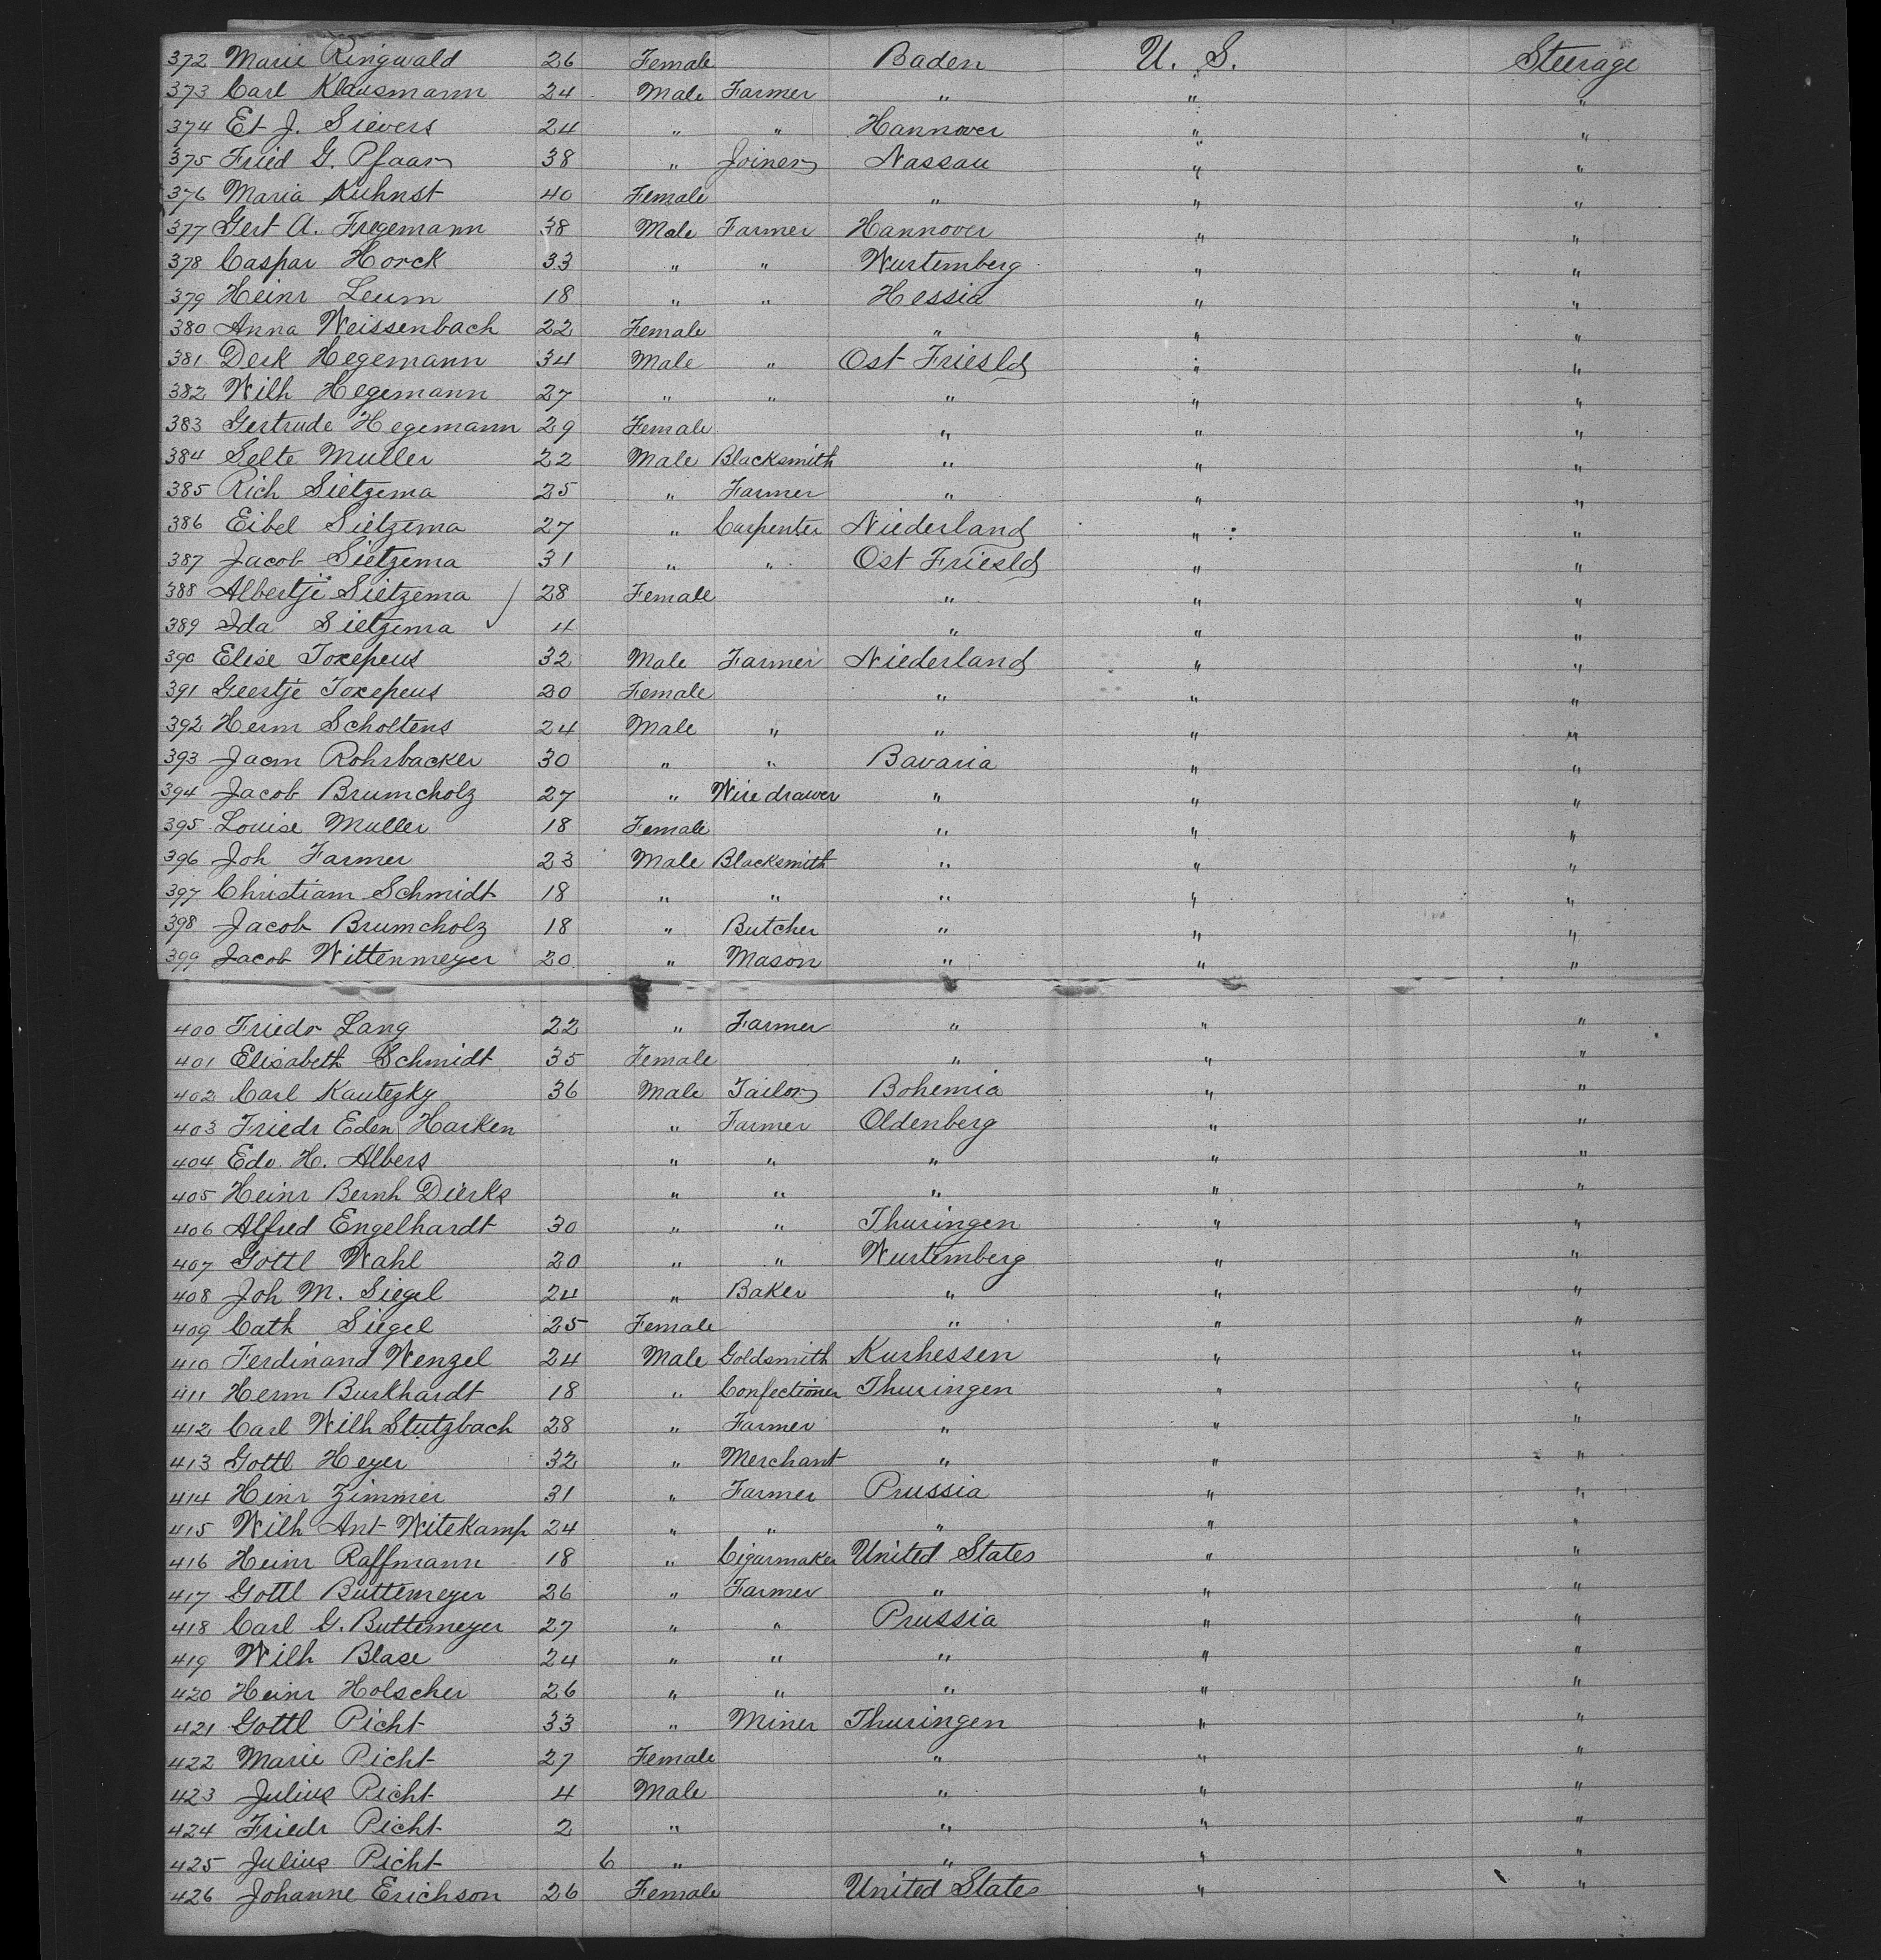 372 Marie Ringwald 26 Female Baden U. S. Steerage
373 Carl Klausmann 24 Male Farmer " " "
374 Et J. Sievers 24 " " Hannover " "
375 Fried G. Pfaar 38 " Joiner Nassau " "
376 Maria Kuhnst 40 Female " " "
377 Gert A. Fregemann 38 Male Farmer Hannover " "
378 Caspar Horck 33 " " Wurtemberg " "
379 Heinr Leum 18 " " Hessia " "
380 Anna Weissenbach 22 Female " " "
381 Derk Hegemann 34 Male " Ost Friesld " "
382 Wilh Hegemann 27 " " " " "
383 Gertrude Hegemann 29 Female " " "
384 Selte Muller 22 Male Blacksmith " " "
385 Rich Sietzema 25 " Farmer " " "
386 Eibel Sietzema 27 " Carpenter Niederland " "
387 Jacob Sietzema 31 " " Ost Friesld " "
388 Albertje Sietzema 28 Female " " "
389 Ida Sietzema 4 " " "
390 Elise Toxepeus 32 Male Farmer Niederland " "
391 Geertje Toxepeus 20 Female " " "
392 Herm Scholtens 24 Male " " " "
393 Jacm Rohrbacker 30 " " Bavaria " "
394 Jacob Brumcholz 27 " Wire drawer " " "
395 Louise Muller 18 Female " " "
396 Joh Farmer 23 Male Blacksmith " " "
397 Christiam Schmidt 18 " " " " "
398 Jacob Brumcholz 18 " Butcher " " "
399 Jacob Wittenmeyer 20 " Mason " " "
400 Friedr Lang 22 " Farmer " " "
401 Elisabeth Schmidt 35 Female " " "
402 Carl Kautezky 36 Male Tailor Bohemia " "
403 Friedr Eden Harken " Farmer Oldenberg " "
404 Edo H. Albers " " " " "
405 Heinr Bernh Dierks " " " " "
406 Alfred Engelhardt 30 " " Thuringen " "
407 Gottl Wahl 20 " " Wurtemberg " "
408 Joh M. Siegel 24 " Baker " " "
409 Cath Siegel 25 Female " " "
410 Ferdinand Wenzel 24 Male Goldsmith Kurhessen " "
411 Herm Burkhardt 18 " Confectioner Thuringen " "
412 Carl Wilh Stutzbach 28 " Farmer " " "
413 Gottl Heyer 32 " Merchant " " "
414 Heinr Zimmer 31 " Farmer Prussia " "
415 Wilh Ant Witekamp 24 " " " " "
416 Heinr Raffmann 18 " Cigarmaker United States " "
417 Gottl Buttemeyer 26 " Farmer " " "
418 Carl G. Buttemeyer 27 " " Prussia " "
419 Wilh Blase 24 " " " " "
420 Heinr Holscher 26 " " " " "
421 Gottl Picht 33 " Miner Thuringen " "
422 Marie Picht 27 Female " " "
423 Julius Picht 4 Male " " "
424 Friedr Picht 2 " " " "
425 Julius Picht 6 " " " "
426 Johanne Erichson 26 Female United States " "